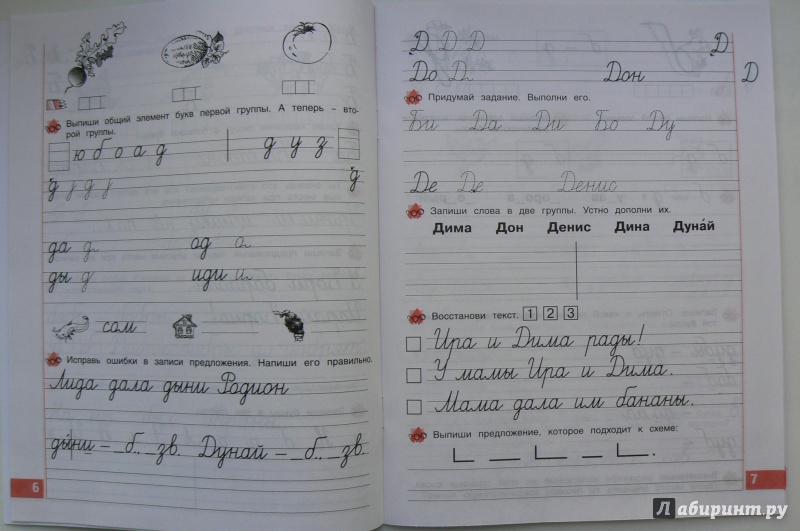 Выпиши общий элемент букв первой группы. А теперь – вто-
рой группы.
ю б о а д д у з
д у д у д
да д од о
ды д иди и
сом
Исправь ошибки в записи предложения. Напиши его правильно.
Лида дала дыни Родион
дыни – _б.. _зв. Дунай – _б.. _зв.
6
Д Д Д Д
До Д Дон Д
Придумай задание. Выполни его.
Би Да Ди Бо Ду
Де Де Денис
Запиши слова в две группы. Устно дополни их.
Дима Дон Денис Дина Дуна́й
Восстанови текст. 1 2 3
Ира и Дима рады!
У мамы Ира и Дима.
Мама дала им бананы.
Выпиши предложение, которое подходит к схеме:
7
Лабиринт.ру